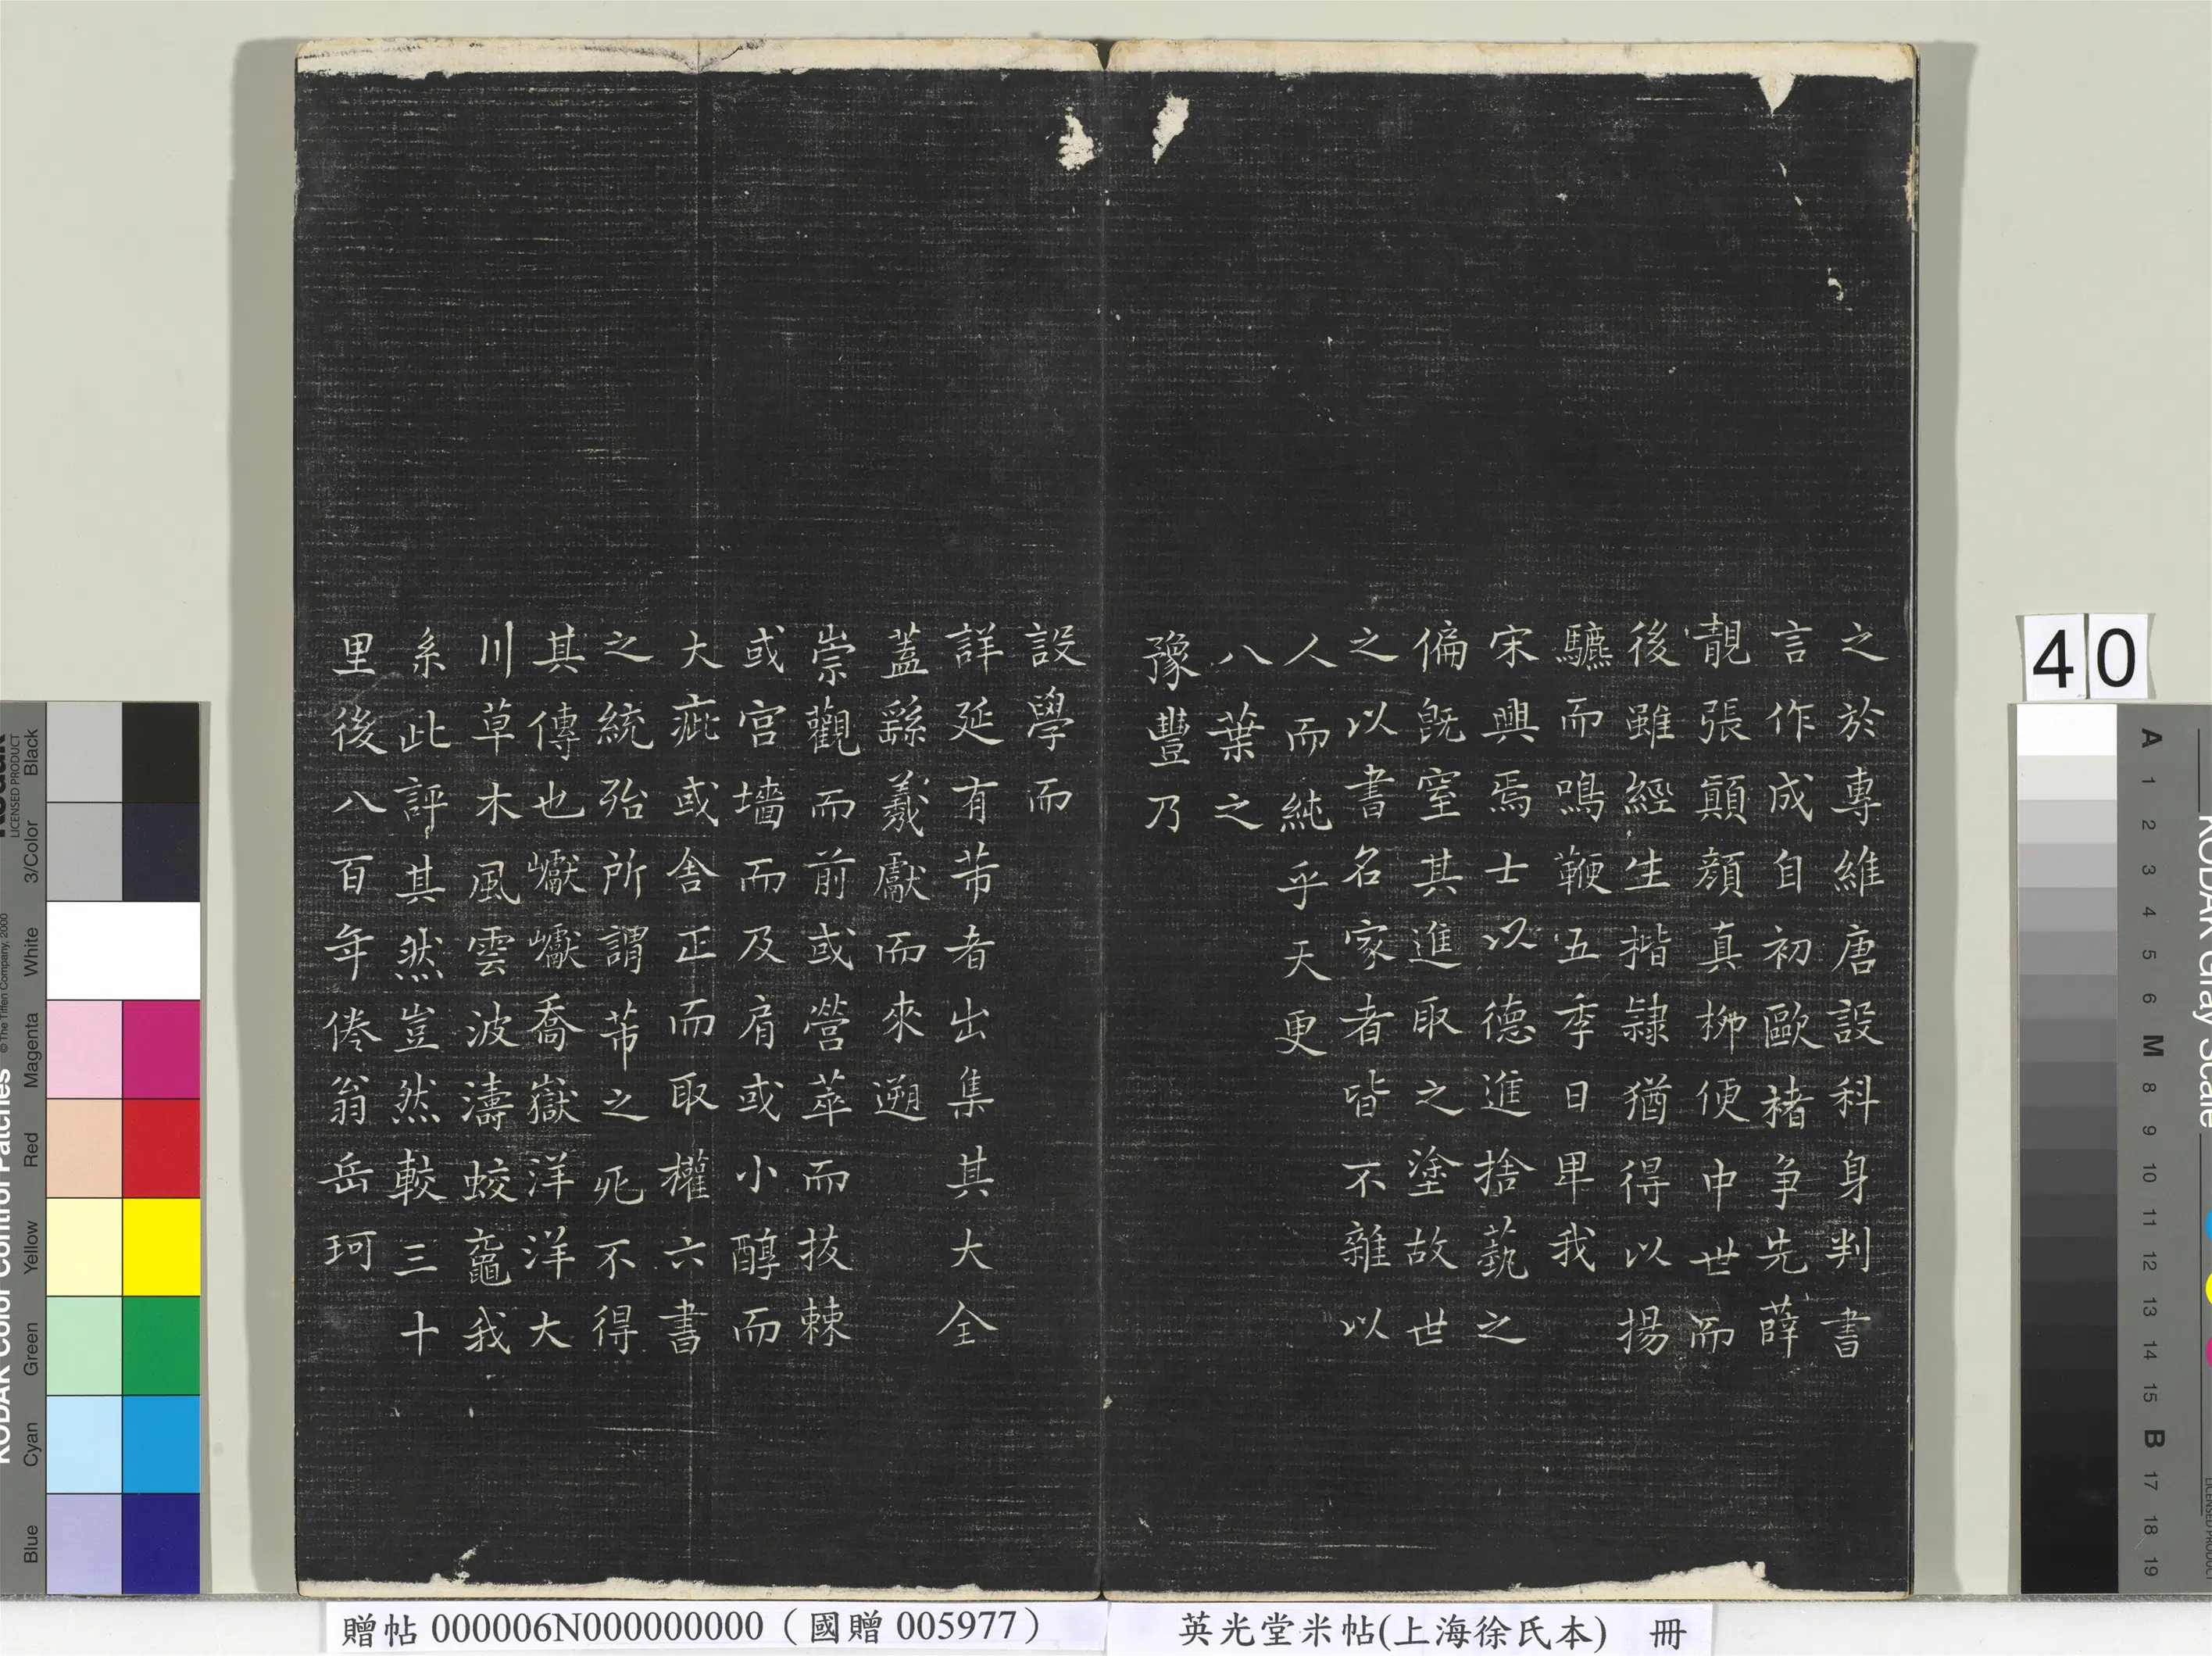 之於專維唐設科身判書
言作成自初歐褚爭先薛
靚張顛顏真栁便中世而
後雖經生揩隷猶得以揚
驫而鳴鞭五季日卑我
宋興焉士以德進捨藝之
偏旣窒其進取之塗故世
之以書名家者皆不雜以
人而純乎天更
八葉之
豫豐乃
設學而
詳延有芾者出集其大全
蓋繇羲獻而來遡
崇觀而前或營萃而拔棘
或宮墻而及肩或小醇而
大疵或舍正而取權六書
之統殆所謂芾之死不得
其傳也巘巘喬嶽洋洋大
川草木風雲波濤蛟鼉我
系此評其然豈然較三十
里後八百年倦翁岳珂
40
KODAK Color Control Patches
© The Tiffen Company, 2000
Kodak
LICENSED PRODUCT
Black
3/Color
White
Magenta
Red
Yellow
Green
Cyan
Blue
KODAK Gray Scale
A 1 2 3 4 5 6 M 8 9 10 11 12 13 14 15 B 17 18 19
贈帖 000006N000000000（國贈 005977）
英光堂米帖(上海徐氏本) 冊